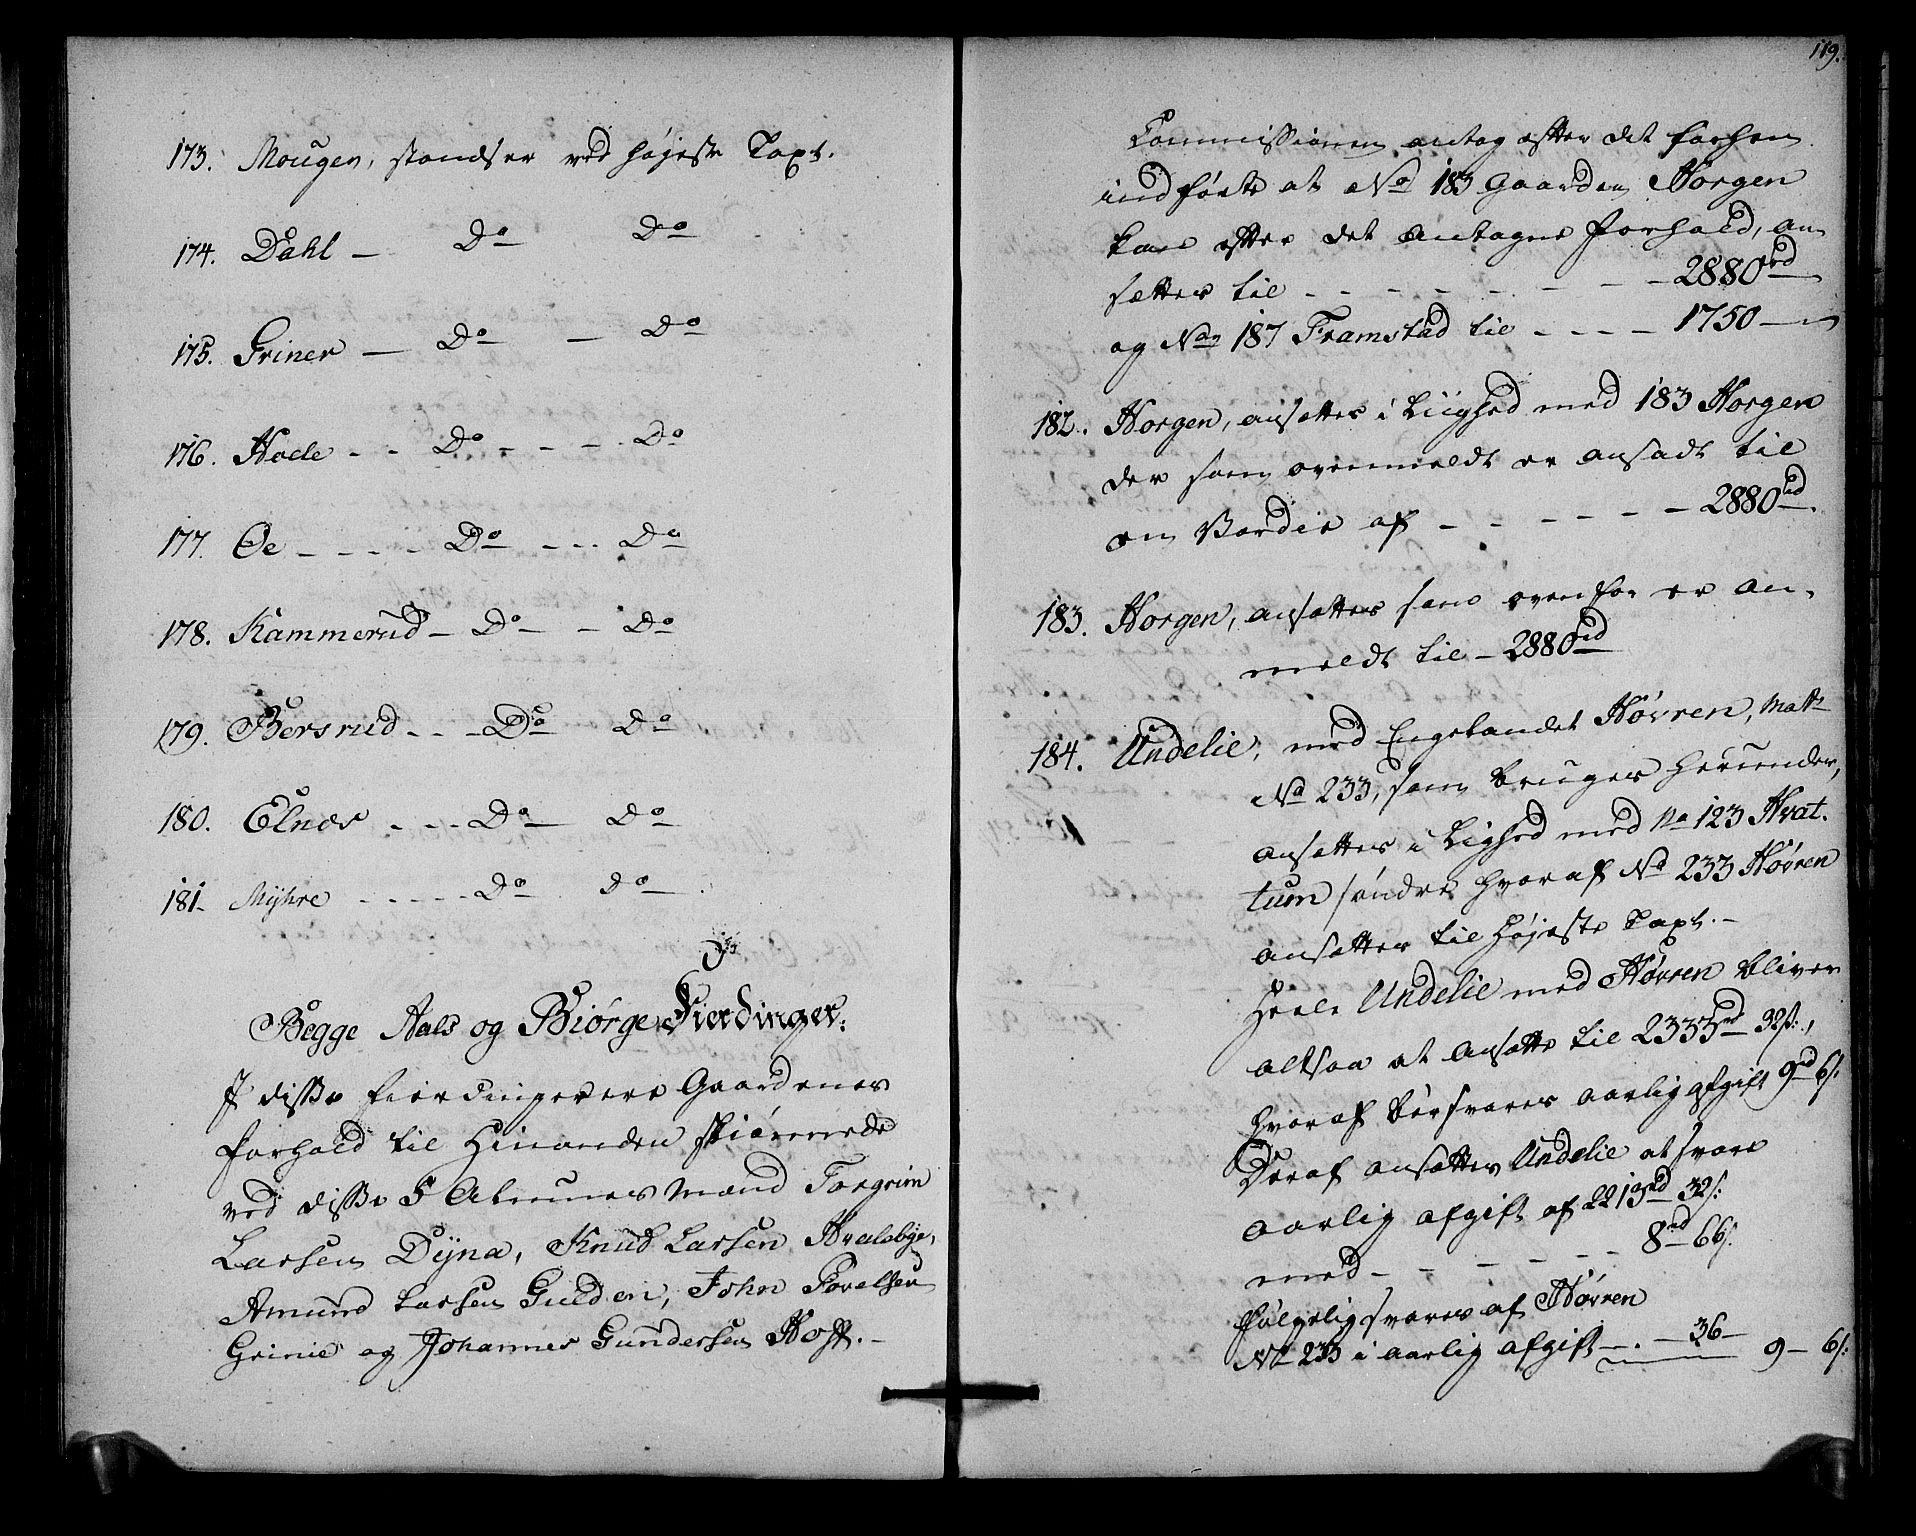 173. Mougen, standser ved højeste Taxt.
174. Dahl — Do — Do
175. Griner — Do — Do
176. Hoele - - Do - - - Do
177. Øe - - - - Do - - - Do
178. Kammerud — Do — Do
179. Bersrud - - - Do Do
180. Elnæs - - - Do — Do
181. Myhre - - - - - Do Do
I
Begge Aals og Biørge Fierdinger.
I disse fierdinger ere Gaardenes
forhold til Hinanden skiønnede
ved disse 5 Almues Mænd Torgrim
Larsen Dyna, Knud Larsen Hvalebye,
Amund Larsen Gulden, John Povelsen
Grinie og Johannes Gundersen Hoff. -
119.
Commissionen antog efter det forhen
indførte at No 183 Gaarden Horgen
kan efter det antagne forhold, an
sættes til - - - - - - - 2880rd
og No 187 Framstad til - - - - 1750 —
182. Horgen, ansættes i Liighed med 183 Horgen
der som ovenmeldt er ansadt til
en Værdie af - - - - - - 2880rd.
183. Horgen, ansættes som ovenfor er an-
meldt til - 2880rd
184. Undelie, med Engelandet Høvren, Matr
No 233, som bruges herunder,
ansættes i Lighed med No 123 Hvat-
tum søndre hvoraf No 233 Høvren
ansættes til Højeste Taxt. -
Heele Undelie med Høvren bliver
altsaa at ansætte til 2333rd 32s:,
hvoraf bør svares aarlig afgift 9rd 6s:
Deraf ansættes Undelie at svare
aarlig afgift af 2213rd 32s:
med - - - - - - 8rd 66s:
følgelig svares af Høvren
No 233 i aarlig afgift - . - 36 - 9 - 6s: